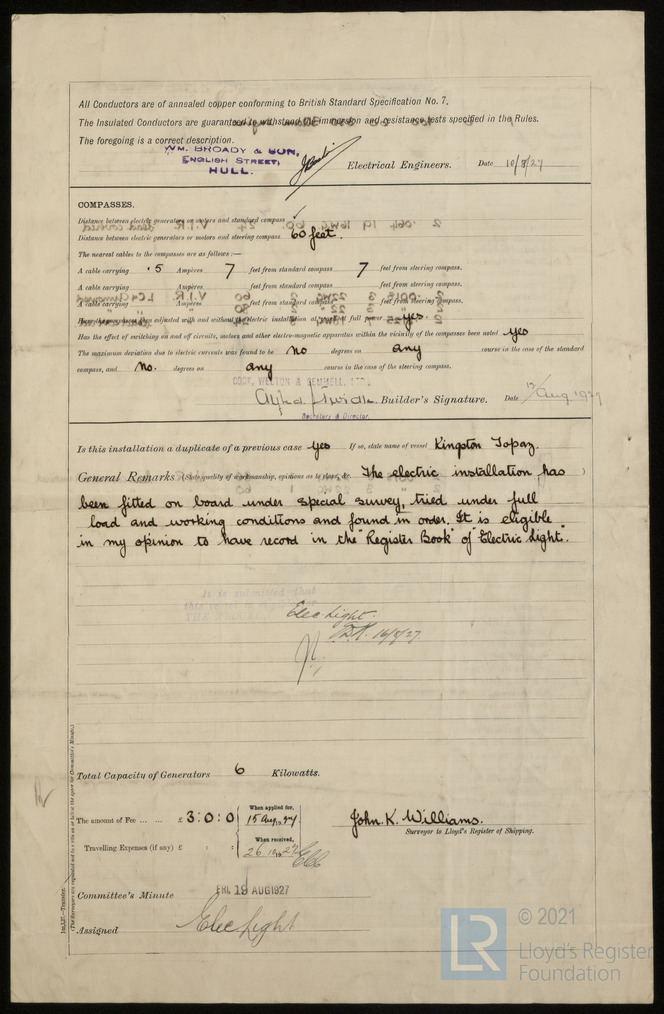 All Conductors are of annealed copper conforming to British Standard Specification No. 7.
The Insulated Conductors are guaranteed to withstand the immersion and resistance tests specified in the Rules.
The foregoing is a correct description.
WM. BROADY & SON,
ENGLISH STREET,
HULL.
Electrical Engineers. Date 10/8/27
COMPASSES.
Distance between electric generators or motors and standard compass ✓
Distance between electric generators or motors and steering compass 60 feet.
The nearest cables to the compasses are as follows:—
A cable carrying .5 Ampères 7 feet from standard compass 7 feet from steering compass.
A cable carrying Ampères feet from standard compass feet from steering compass.
A cable carrying Ampères feet from standard compass feet from steering compass.
Have the compasses been adjusted with and without the electric installation at work at full power yes
Has the effect of switching on and off circuits, motors and other electro-magnetic apparatus within the vicinity of the compasses been noted yes
The maximum deviation due to electric currents was found to be no degrees on any course in the case of the standard
compass, and no. degrees on any course in the case of the steering compass.
COOK, WELTON & GEMMELL, LTD.,
Builder's Signature. Date 12/Aug 1927
Secretary & Director.
Is this installation a duplicate of a previous case yes If so, state name of vessel Kingston Topaz.
General Remarks (State quality of workmanship, opinions as to class, &c. The electric installation has )
been fitted on board under special survey, tried under full
load and working conditions and found in order. It is eligible
in my opinion to have record in the "Register Book" of "Electric Light".
It is submitted that
this vessel is eligible for
Elec Light.
16/8/27
Total Capacity of Generators 6 Kilowatts.
The amount of Fee ... ... £ 3 : 0 : 0 When applied for, 15 Aug. 1927
John K. Williams.
Surveyor to Lloyd's Register of Shipping.
Travelling Expenses (if any) £ : : When received, 26.10.27
Committee's Minute FRI. 19 AUG 1927
Assigned Elec Light
1m.1.27.—Transfer.
(The Surveyors are requested not to write on or below the space for Committee's Minute.)
LR
© 2021
Lloyd's Register
Foundation